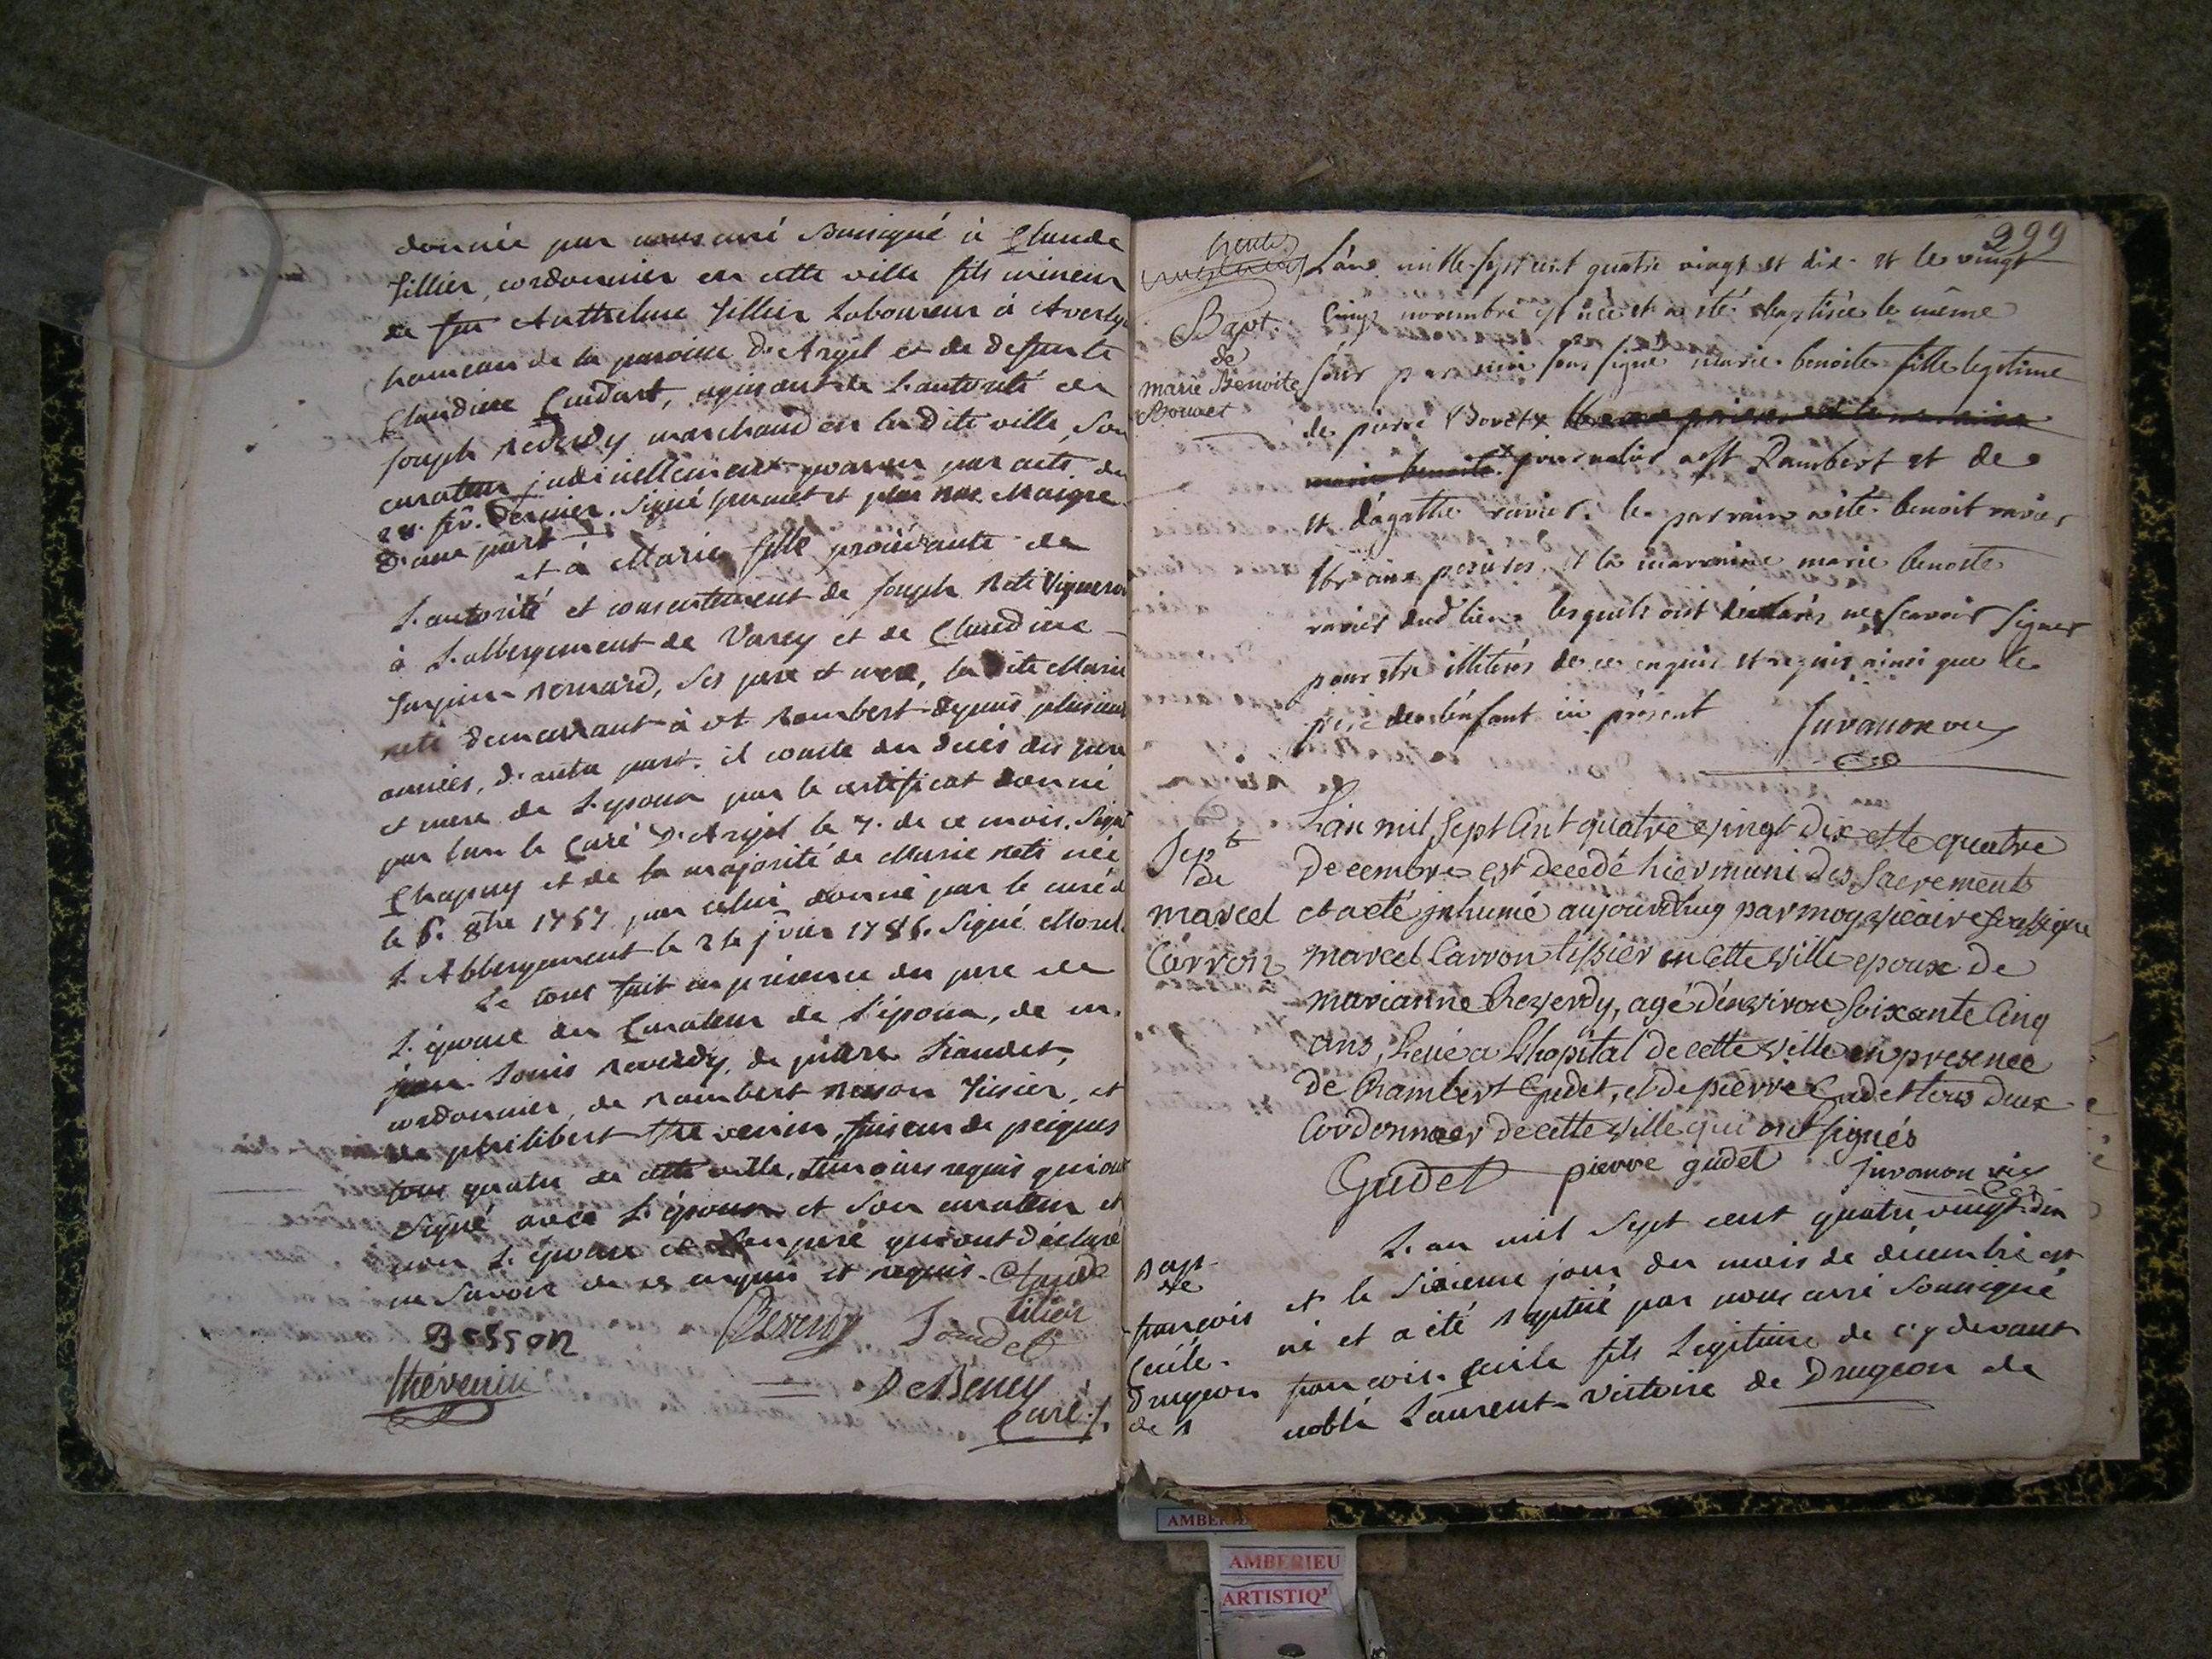 donnée par nous curé Soussigné à Claude
Tillier, cordonnier en cette ville fils mineur
de feu Anthelme Tillier Laboureur à Averly
hameau de la paroisse D'Argil et de deffunte
Claudine Cuidard, agissant de L'autorité de
Joseph Reverdy marchand en la dite ville, son
curateur judiciellement par acte du
28. fév. dernier. Signé et plus bas Maigre
D'une part
et à Marie fille procédante de
L'autorité et consentement de Joseph Neti Vigneron
à L'abbergement de Varey et de Claudine
Bernard, Ses pere et mere, la dite Marie
neti demeurant à St Rambert depuis plusieurs
années, d'autre part. il conste du decès des pere
et mere de L'epoux par le certificat donné
par le Curé D'Argil le 7. de ce mois. Signé
Chapuy et de la majorité de Marie neti née
le 6. 8bre 1757 par celui donné par le curé de
L'Abbergement le 1786. Signé Morel.
Le tout fait en présence du pere de
L'epouse du Curateur de L'epoux, de m.
jean Louis reverdy, de pierre Liaudet,
cordonnier, de rambert besson Tissier, et
de philibert thevenin, faiseur de peignes
tous quatre de cette ville, témoins requis qui ont
Signé avec L'epoux et son curateur et
non L'epouse et Son peré qui ont déclaré
ne Savoir de ce enquis et requis. Claude
tilier
Besson Reverdy Liaudet
thévenin DeBeney
Curé
299
trente
Bapt.
de
marie Benoite
Bouvet
L'an mille-sept cent quatre vingt et dix et le vingt
cinq novembre est née et a été baptisée le même
jour par moi sous signé marie benoite fille legitime
de pierre Bovet
journalier a St Rambert et de
et d'agathe ravier. le parrain a été benoit ravier
et la marraine marie benoite
ravier dud lieu lesquels ont déclarés ne scavoir signer
pour etre illiterés de ce enquis et requis ainsi que le
pere de l'enfant ici présent Juvanon vic
Sept
de
marcel
Carron
L'an mil sept Cent quatre vingt dix et le quatre
Decembre est decedé hier muni des Sacrements
et a eté inhumé aujourdhuy par moy vicaire soussigné
marcel Carron tissier en Cette ville epoux de
marianne Reverdy, agé d'environ soixante Cinq
ans, a L'hopital de cette ville en presence
de Rambert Gudet, et de pierre Gudet tous deux
Cordonnier de cette ville qui ont signés
Gudet pierre gudet Juvanon vic
Bapt
de
françois
Cecile.
Drugeon
de B
L'an mil Sept cent quatre vingt-dix
et le Sixieme jour du mois de décembre est
né et a été Baptisé par nous curé Soussigné
françois. Cecile fils Legitime de cy devant
noble Laurent-Victoire de Drugeon de
AMBERIEU
ARTISTIQ'